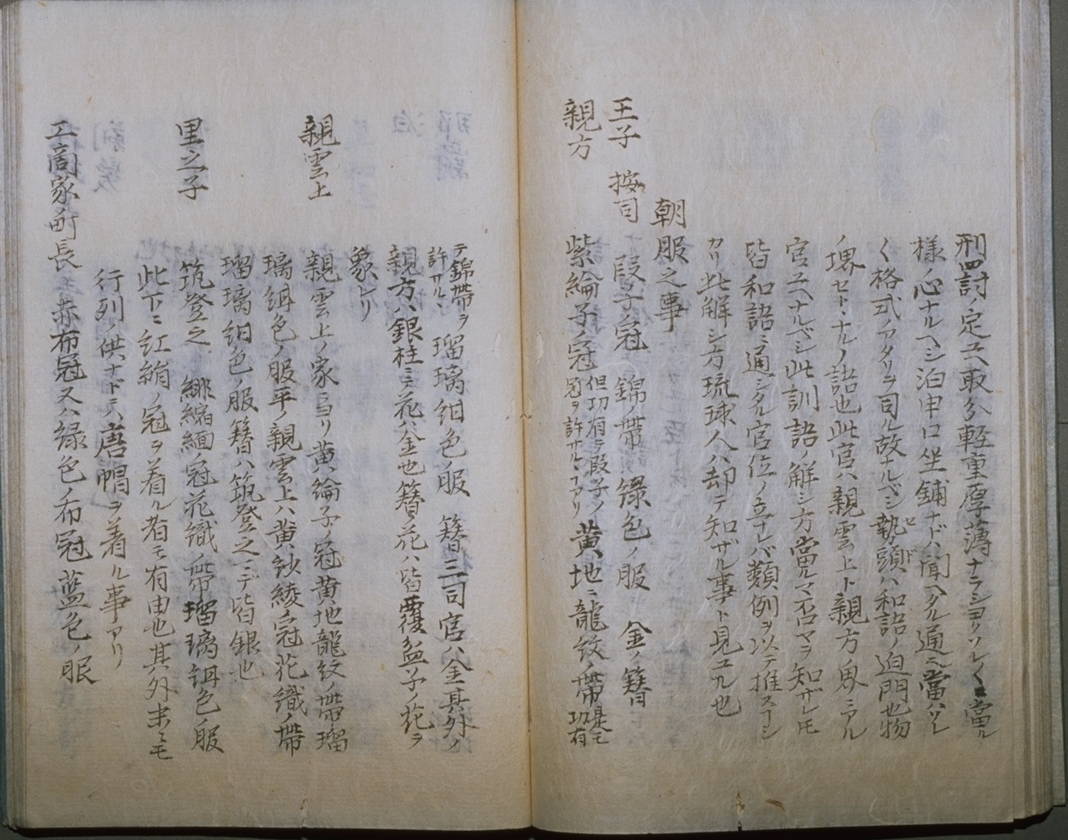 刑罰ノ定ユヘ取分軽重厚薄ナラシヨリソレ〱ニ當ル
様ノ心ナルベシ泊申口坐鋪ナド聞ヘタル通ニ當ハリシ
ク格式ノアタリヲ司ル故ナルベシ勢頭ハ和語ノ迫門也物
ノ堺セトナルノ語也此官ハ親雲上ト親方ノ界ニアル
官ユヘナルベシ此訓語ノ解シ方當ルマ否マヲ知ザレモ
皆和語ニ通シタル官位ノ立ナレバ類例ヲ以テ推スナシ
カリ此解シ方琉球人ハ却テ知ザル事ト見ユル也
朝服之事
王子 按司 段子冠 錦ノ帯 緑色ノ服 金ノ簪
親方 紫綸子ノ冠 但功有ヲ段子ノ冠ヲ許サルヽコアリ 黄地ニ龍紋ノ帯 是モ功有
テ錦帯ヲ許サル 瑠璃紺色服 簪三司官ハ金其外ノ
親方ハ銀柱ニ〆花ハ金也簪花ハ皆覆盆子ノ花ヲ
象レリ
親雲上 親雲上ノ家ヨリ黄綸子ノ冠黄地龍紋ノ帯瑠
璃紺色ノ服平ノ親雲上ハ黄紗綾ノ冠花織ノ帯
瑠璃紺色ノ服簪ハ筑登之マデ皆銀也
里之子 筑登之 緋縮緬冠花織ノ帯瑠璃紺色ノ服
此下ニ紅絹ノ冠ヲ着ル者モ有由也其外末ニモ
行列ノ供ナドニハ唐帽ヲ着ル事アリ
工商家町長 赤布冠又ハ緑色布冠藍色ノ服